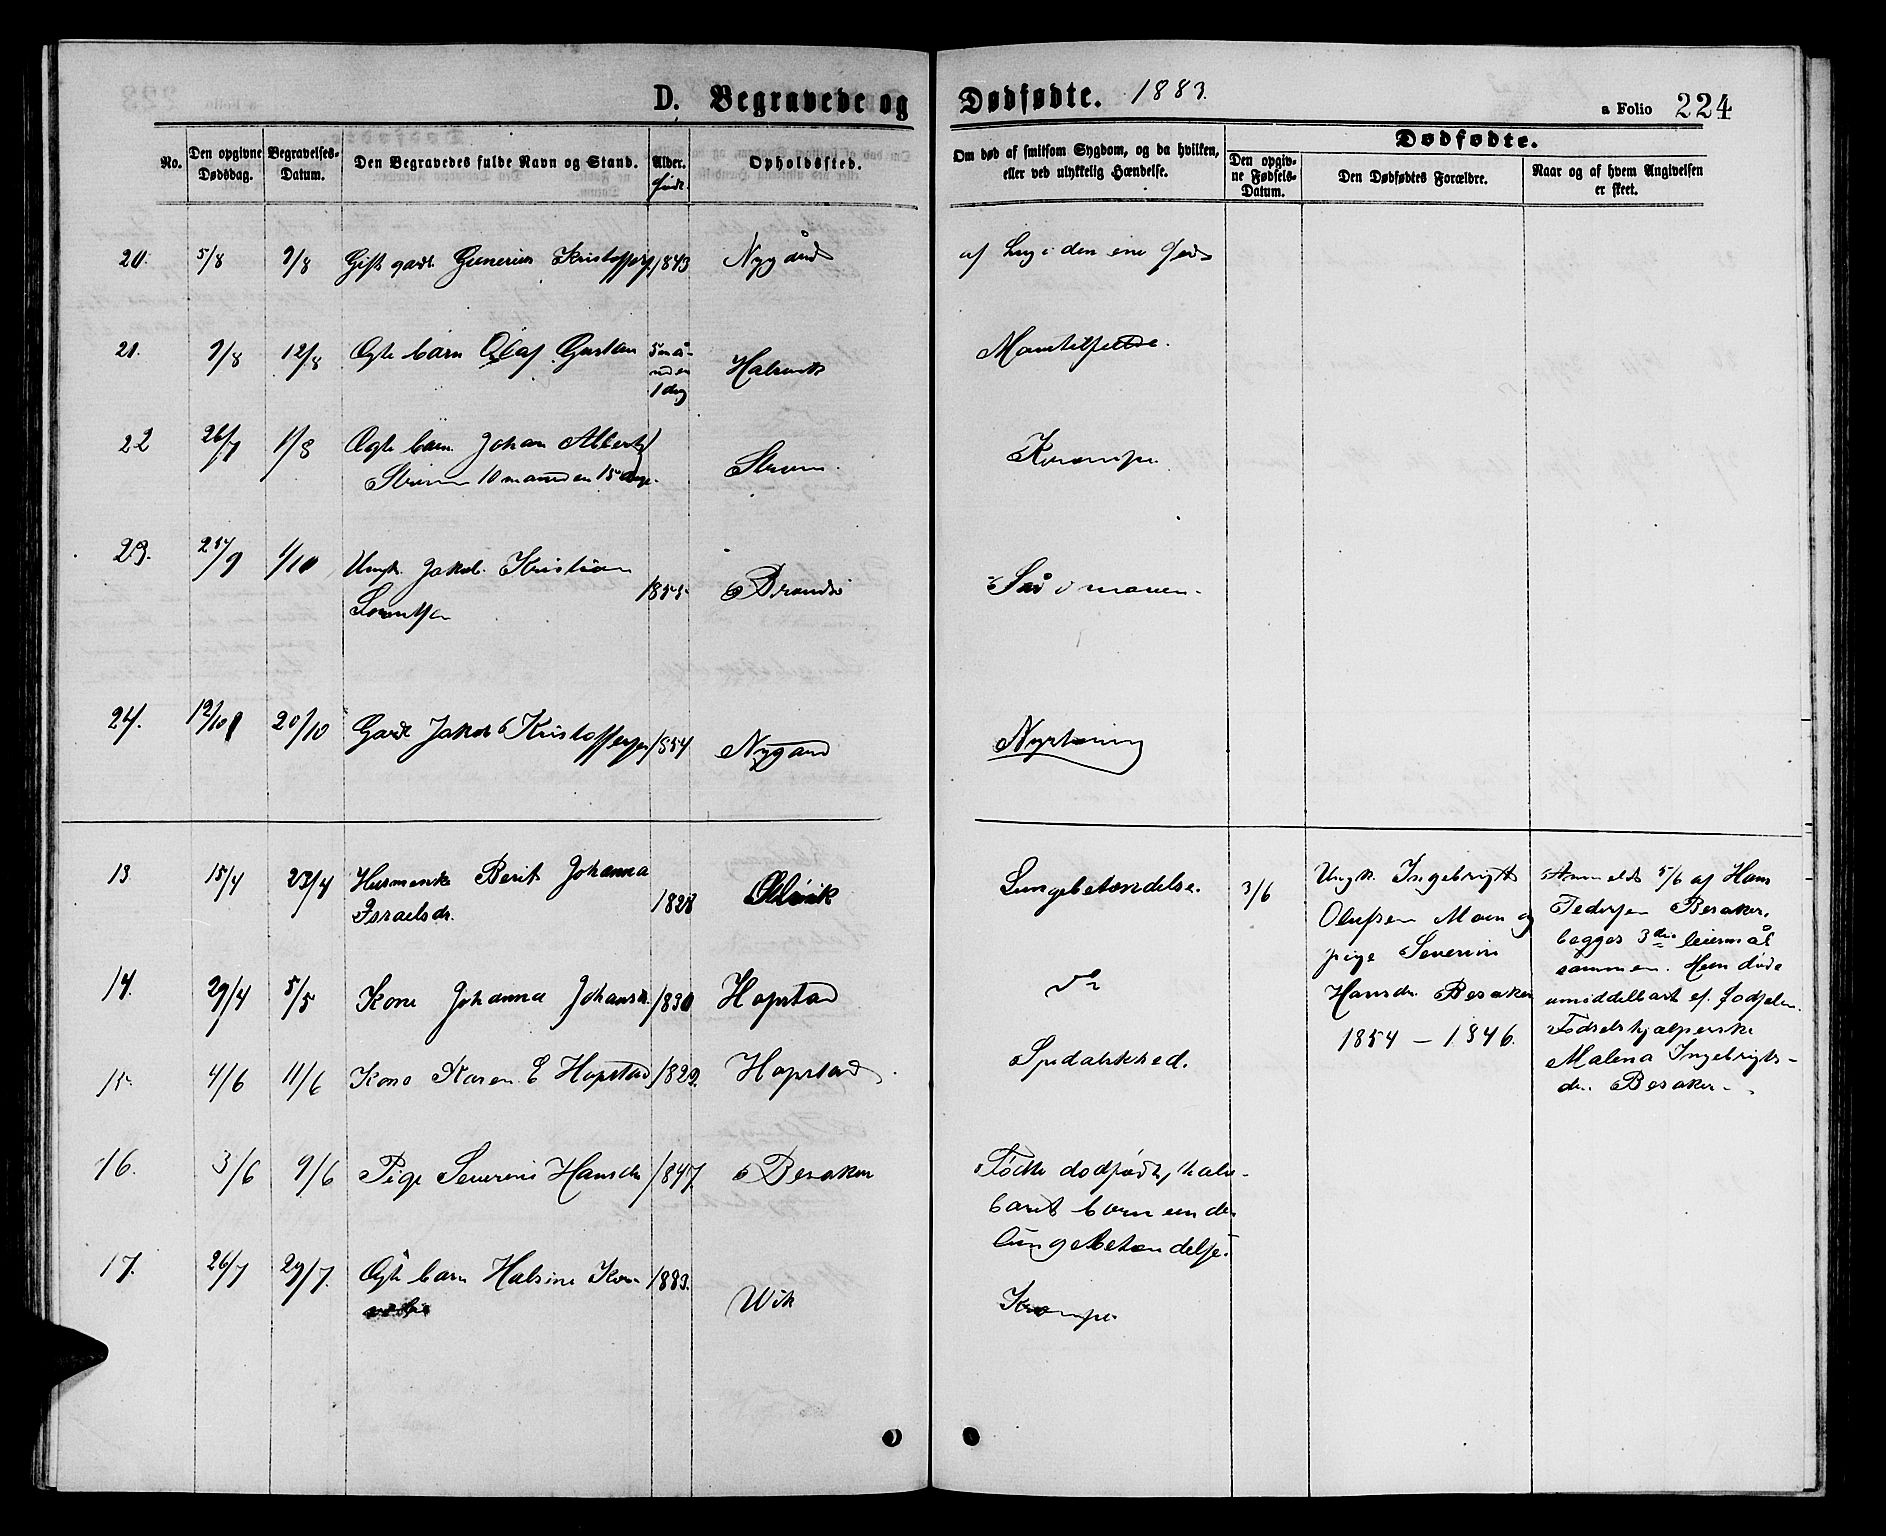 D. Begravede og Dødfødte. 1883.
a Folio 224
No.
Den opgivne Dødsdag.
Begravelses-Datum.
Den Begravedes fulde Navn og Stand.
Alder.
Født.
Opholdssted.
Om død af smitsom Sygdom, og da hvilken,
eller ved ulykkelig Hændelse.
Dødfødte.
Den opgiv-
ne Fødsels-
Datum.
Den Dødfødtes Forældre.
Naar og af hvem Angivelsen
er skeet.
20. 5/8 9/8 Gift gadr. Gunerius 1843 Nygård
af i den ene
21. 9/8 12/8 Ægte barn Olaf Gustav 5 må-
neder
1 dag
22 26/7 1/8 Ægte barn Johan Albert
Strøm 10 maaneder 15 dage. Strøm. Krampe
23. 25/9 1/10 Ungk. Jakob Kristian
Lorentsen 1855 Sår i maven.
24. 12/10 20/10 Gadr. Jakob Kristoffersen 1854 Nygaard
13 15/4 23/4 Berit Johanna
Israelsdr. 1828 Lungebetændelse. 3/6
Ungk. Ingebrigt
Olufsen Moen og
pige Severine
Hansdr. Besaker
1854 – 1846.
Anmeldt 5/6 af Hans
Pedersen Besaker.
begges 3die leiermål
sammen. døde
umiddelbart ef. fødselen.
Fødselshjælperske
Malena Ingebrigts-
dr. Besaker.
14. 29/4 5/5 Kone Johanna Johansd. 1830 Hopstad
15. 4/6 11/6 Kone Karen E Hopstad 1829. Hopstad Spedalskhed.
16. 3/6 9/6 Pige Severine Hansdr 1847. Besaker
Fødte dødfødt,
baret barn under
lungebetændelse.
17. 26/7 29/7. Ægte barn Halsine 1883. Wik Krampe